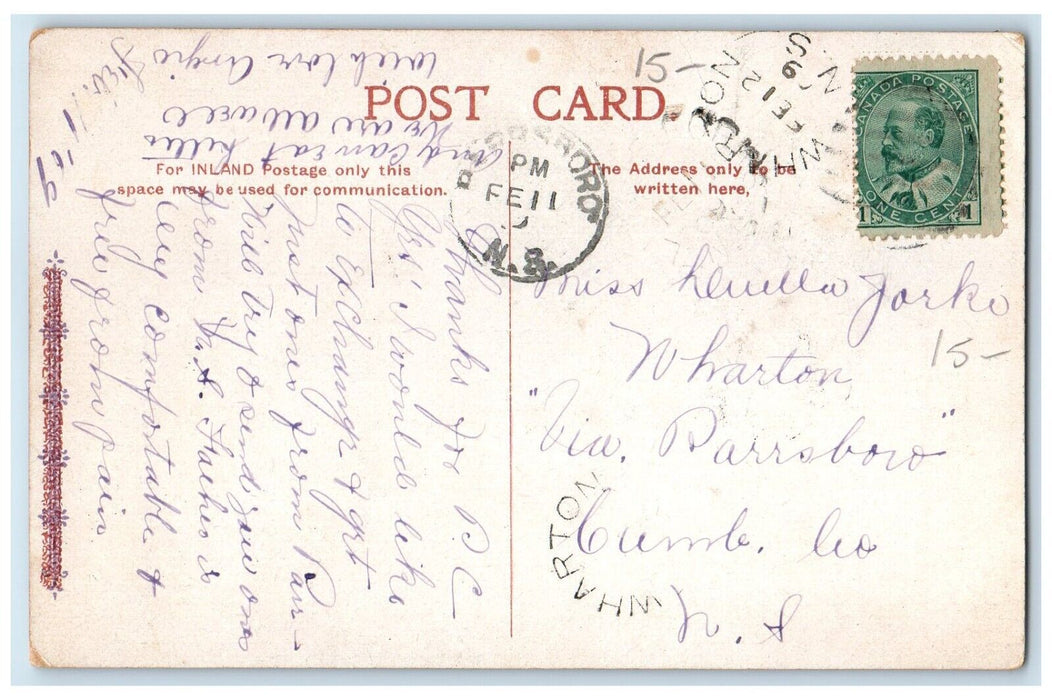 POST CARD.
For INLAND Postage only this
space may be used for communication.
The Address only to be
written here,
15-
WHARTON
FE 12
09
N.S
CANADA POSTAGE
ONE CENT
1 1
PARRSBORO.
PM
FE 11
N.S.
Feb. 11 '09
Thanks for P C
Yes I would like
to Exchange & get
just ones from Parr-
Will try & send you ones
from N.S. Father is
very comfortable &
free from pain
and can eat
We are all well
with love Angie
Miss Luella Yorke
Wharton
"Via. Parrsboro"
Cumb. Co
N. S
15-
WHARTON